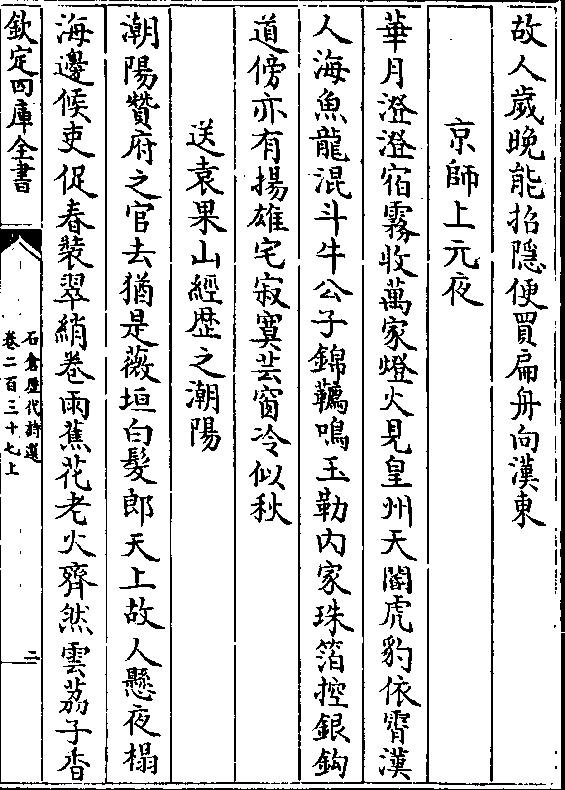 故人歲晚能招隱便買扁舟向漢東
京師上元夜
華月澄澄宿霧收萬家燈火見皇州天閽虎豹依霄漢
人海魚龍混斗牛公子錦韉鳴玉勒內家珠箔控銀鈎
道傍亦有揚雄宅寂寞芸窗冷似秋
送袁果山經歴之潮陽
潮陽贊府之官去猶是薇垣白髮郎天上故人懸夜榻
海邊候吏促春裝翠綃卷雨蕉花老火齊然雲荔子香
欽定四庫全書
石倉歴代詩選
卷二百三十七上
二